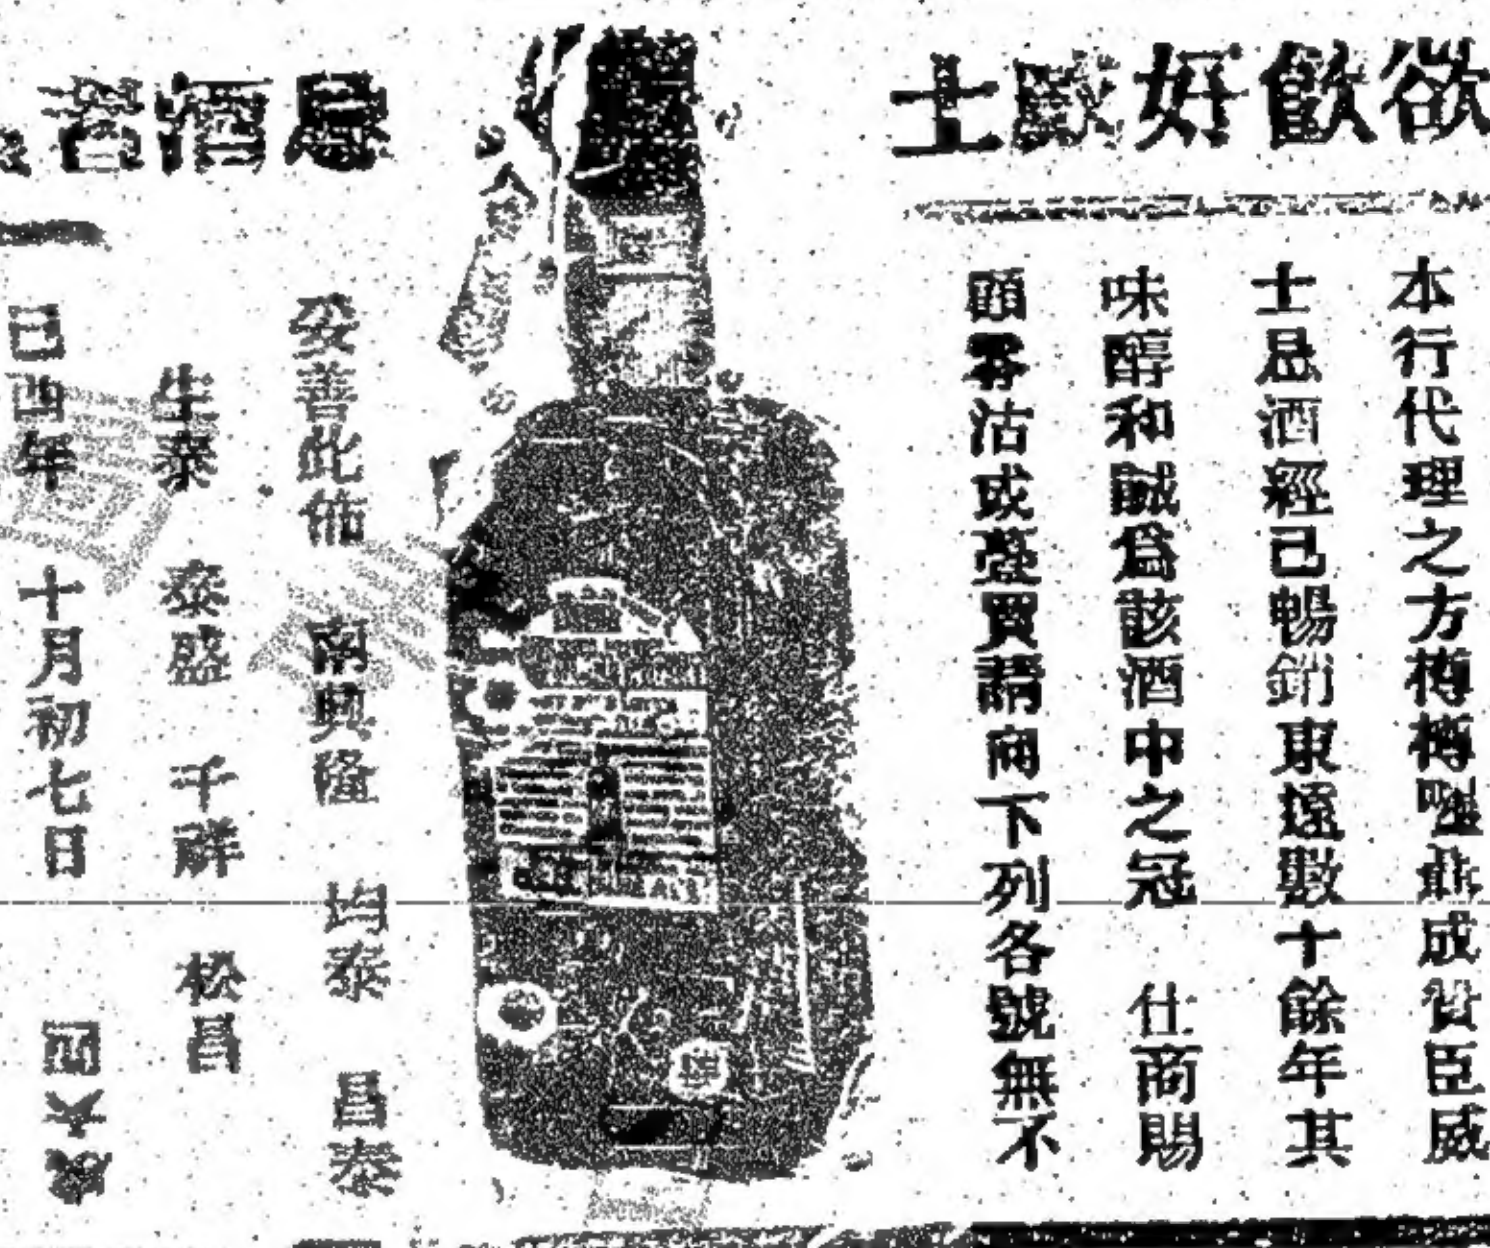 欲飲好嘅士
忌酒者
本行代理之方樽樽嘜鼎成貲臣威
士忌酒經已暢銷東遠數十餘年其
味醇和誠為該酒中之冠 仕商賜
顧零沽或躉買請商下列各號無不
妥善此佈 南興隆 均泰 昌泰
生泰 泰盛 千祥 松昌
己酉年 十月初七日